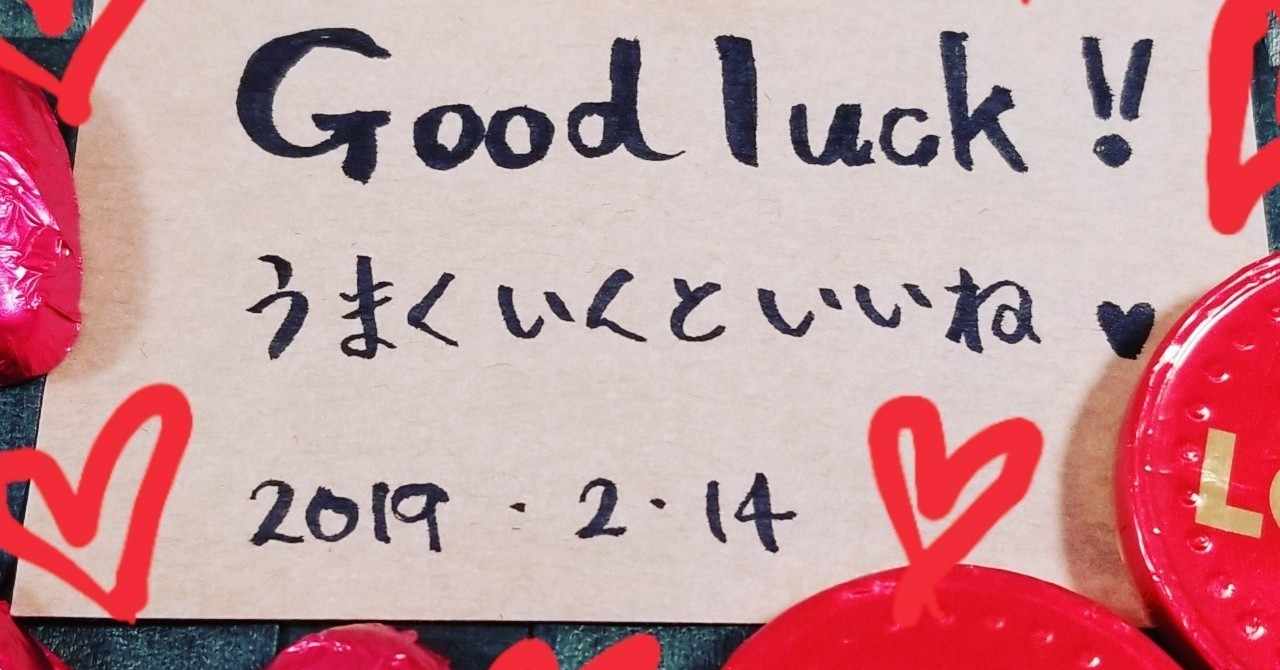 Good luck!!
うまくいくといいね♥
2019・2・14